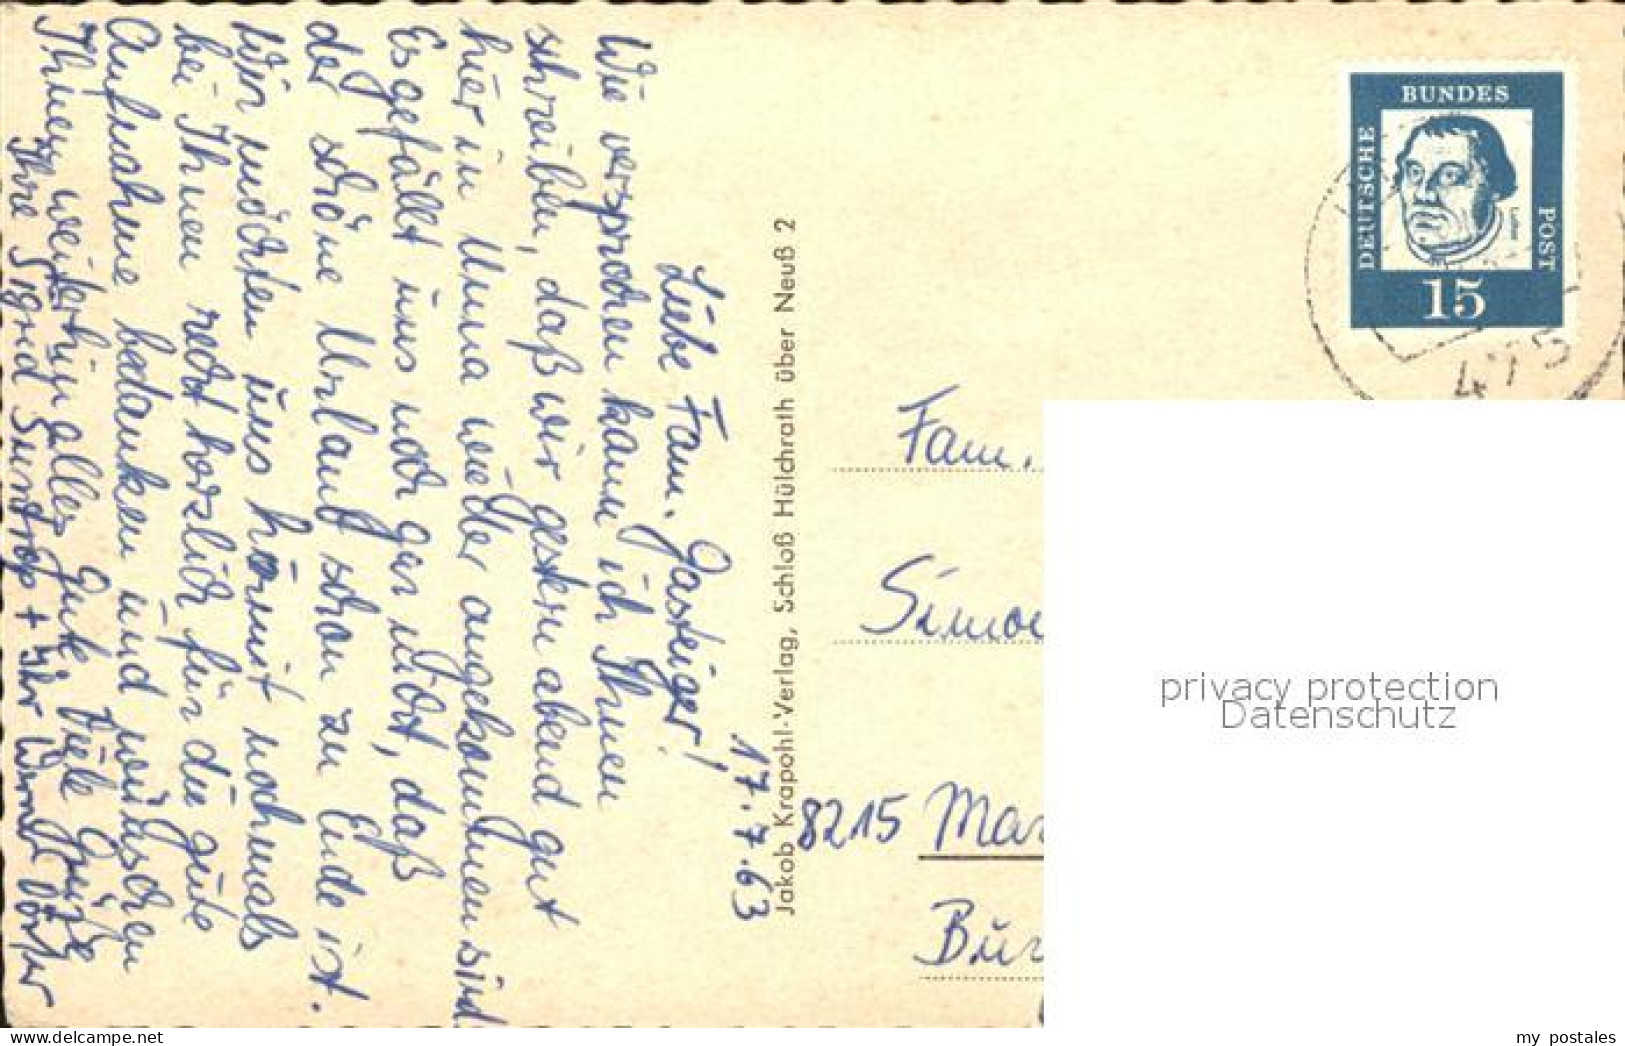 17.7.63
Liebe Fam. Gasteiger!
Wie versprochen kann ich Ihnen
schreiben, daß wir gestern abend gut
hier in Unna wieder angekommen sind.
Es gefällt uns noch gar nicht, daß
der schöne Urlaub schon zu Ende ist.
Wir möchten uns hiermit nochmals
bei Ihnen recht herzlich für die gute
Aufnahme bedanken und wünschen
Ihnen weiterhin alles Gute. Viele Grüße
Ihre Sigrid Suntrop +
Jakob Krapohl-Verlag, Schloß Hülchrath über Neuß 2
DEUTSCHE
BUNDES
POST
15
475
Fam.
Simon
8215 Mar
privacy protection
Datenschutz
delcampe.net
my_postales